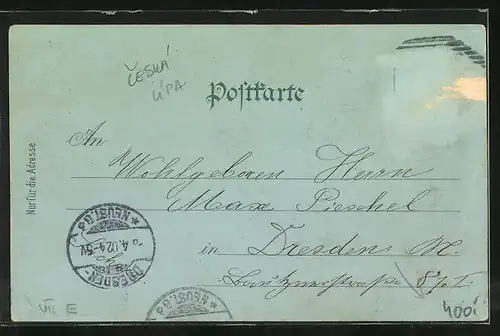 ČESKÁ
LÍPA
Postkarte
Nur für die Adresse
An
Wohlgeboren Herrn
Max Pieschel
in Dresden N.
Bautznerstrasse 8 I
DRESDEN-
* NEUST. 6 *
4.02.4-5N.
* NEUST. 6
VII E
400